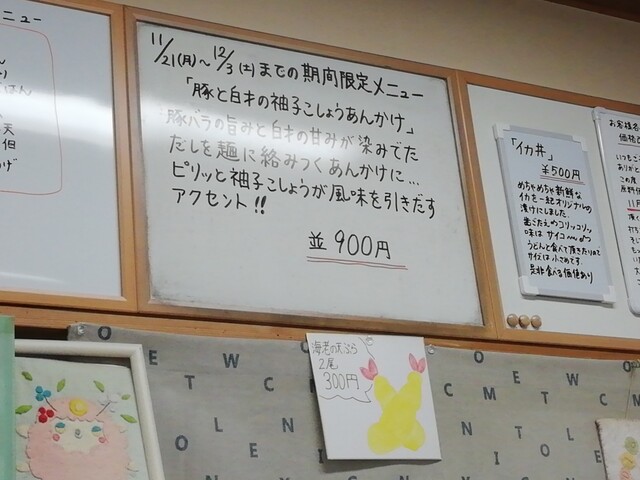 ニュー
天
但
11/21(月)～12/3(土)までの期間限定メニュー
「豚と白才の袖子こしょうあんかけ」
豚バラの旨みと白才の甘みが染みでた
だしを麺に絡みつくあんかけに…
ピリッと袖子こしょうが風味を引きだす
アクセント!!
並 900円
「イカ丼」
￥500円
めちゃめちゃ新鮮な
イカを一杯オリジナルの
漬けにしました
歯ごたえのコリッコリッ
味はサイコ～
うどんと食べて頂きたいので
サイズは小さめです。
是非食べる価値あり
お客様各
価格
いつも
ありがと
この度
原材料
11月
海老の天ぷら
2尾
300円
O E T W C O
T C C M E T W C
O L E N N T O L
U N I O L E